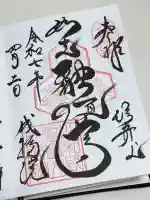 奉拝
信貴山
如意融通尊
令和七年
四月二日
成福院